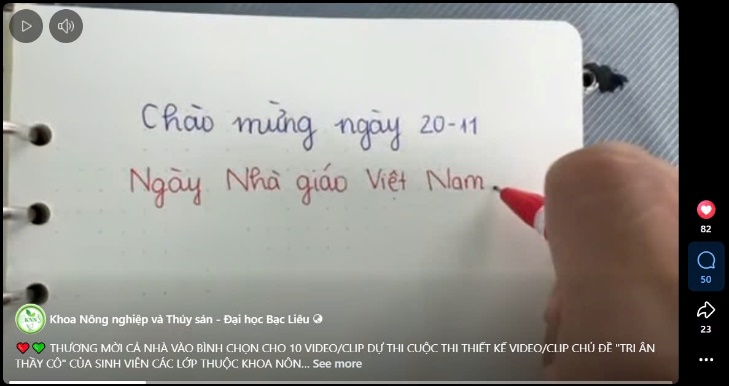 Chào mừng ngày 20-11
Ngày Nhà giáo Việt Nam
KNN
Khoa Nông nghiệp và Thủy sản - Đại học Bạc Liêu
THƯƠNG MỜI CẢ NHÀ VÀO BÌNH CHỌN CHO 10 VIDEO/CLIP DỰ THI CUỘC THI THIẾT KẾ VIDEO/CLIP CHỦ ĐỀ "TRI ÂN
THẦY CÔ" CỦA SINH VIÊN CÁC LỚP THUỘC KHOA NÔN... See more
82
50
23